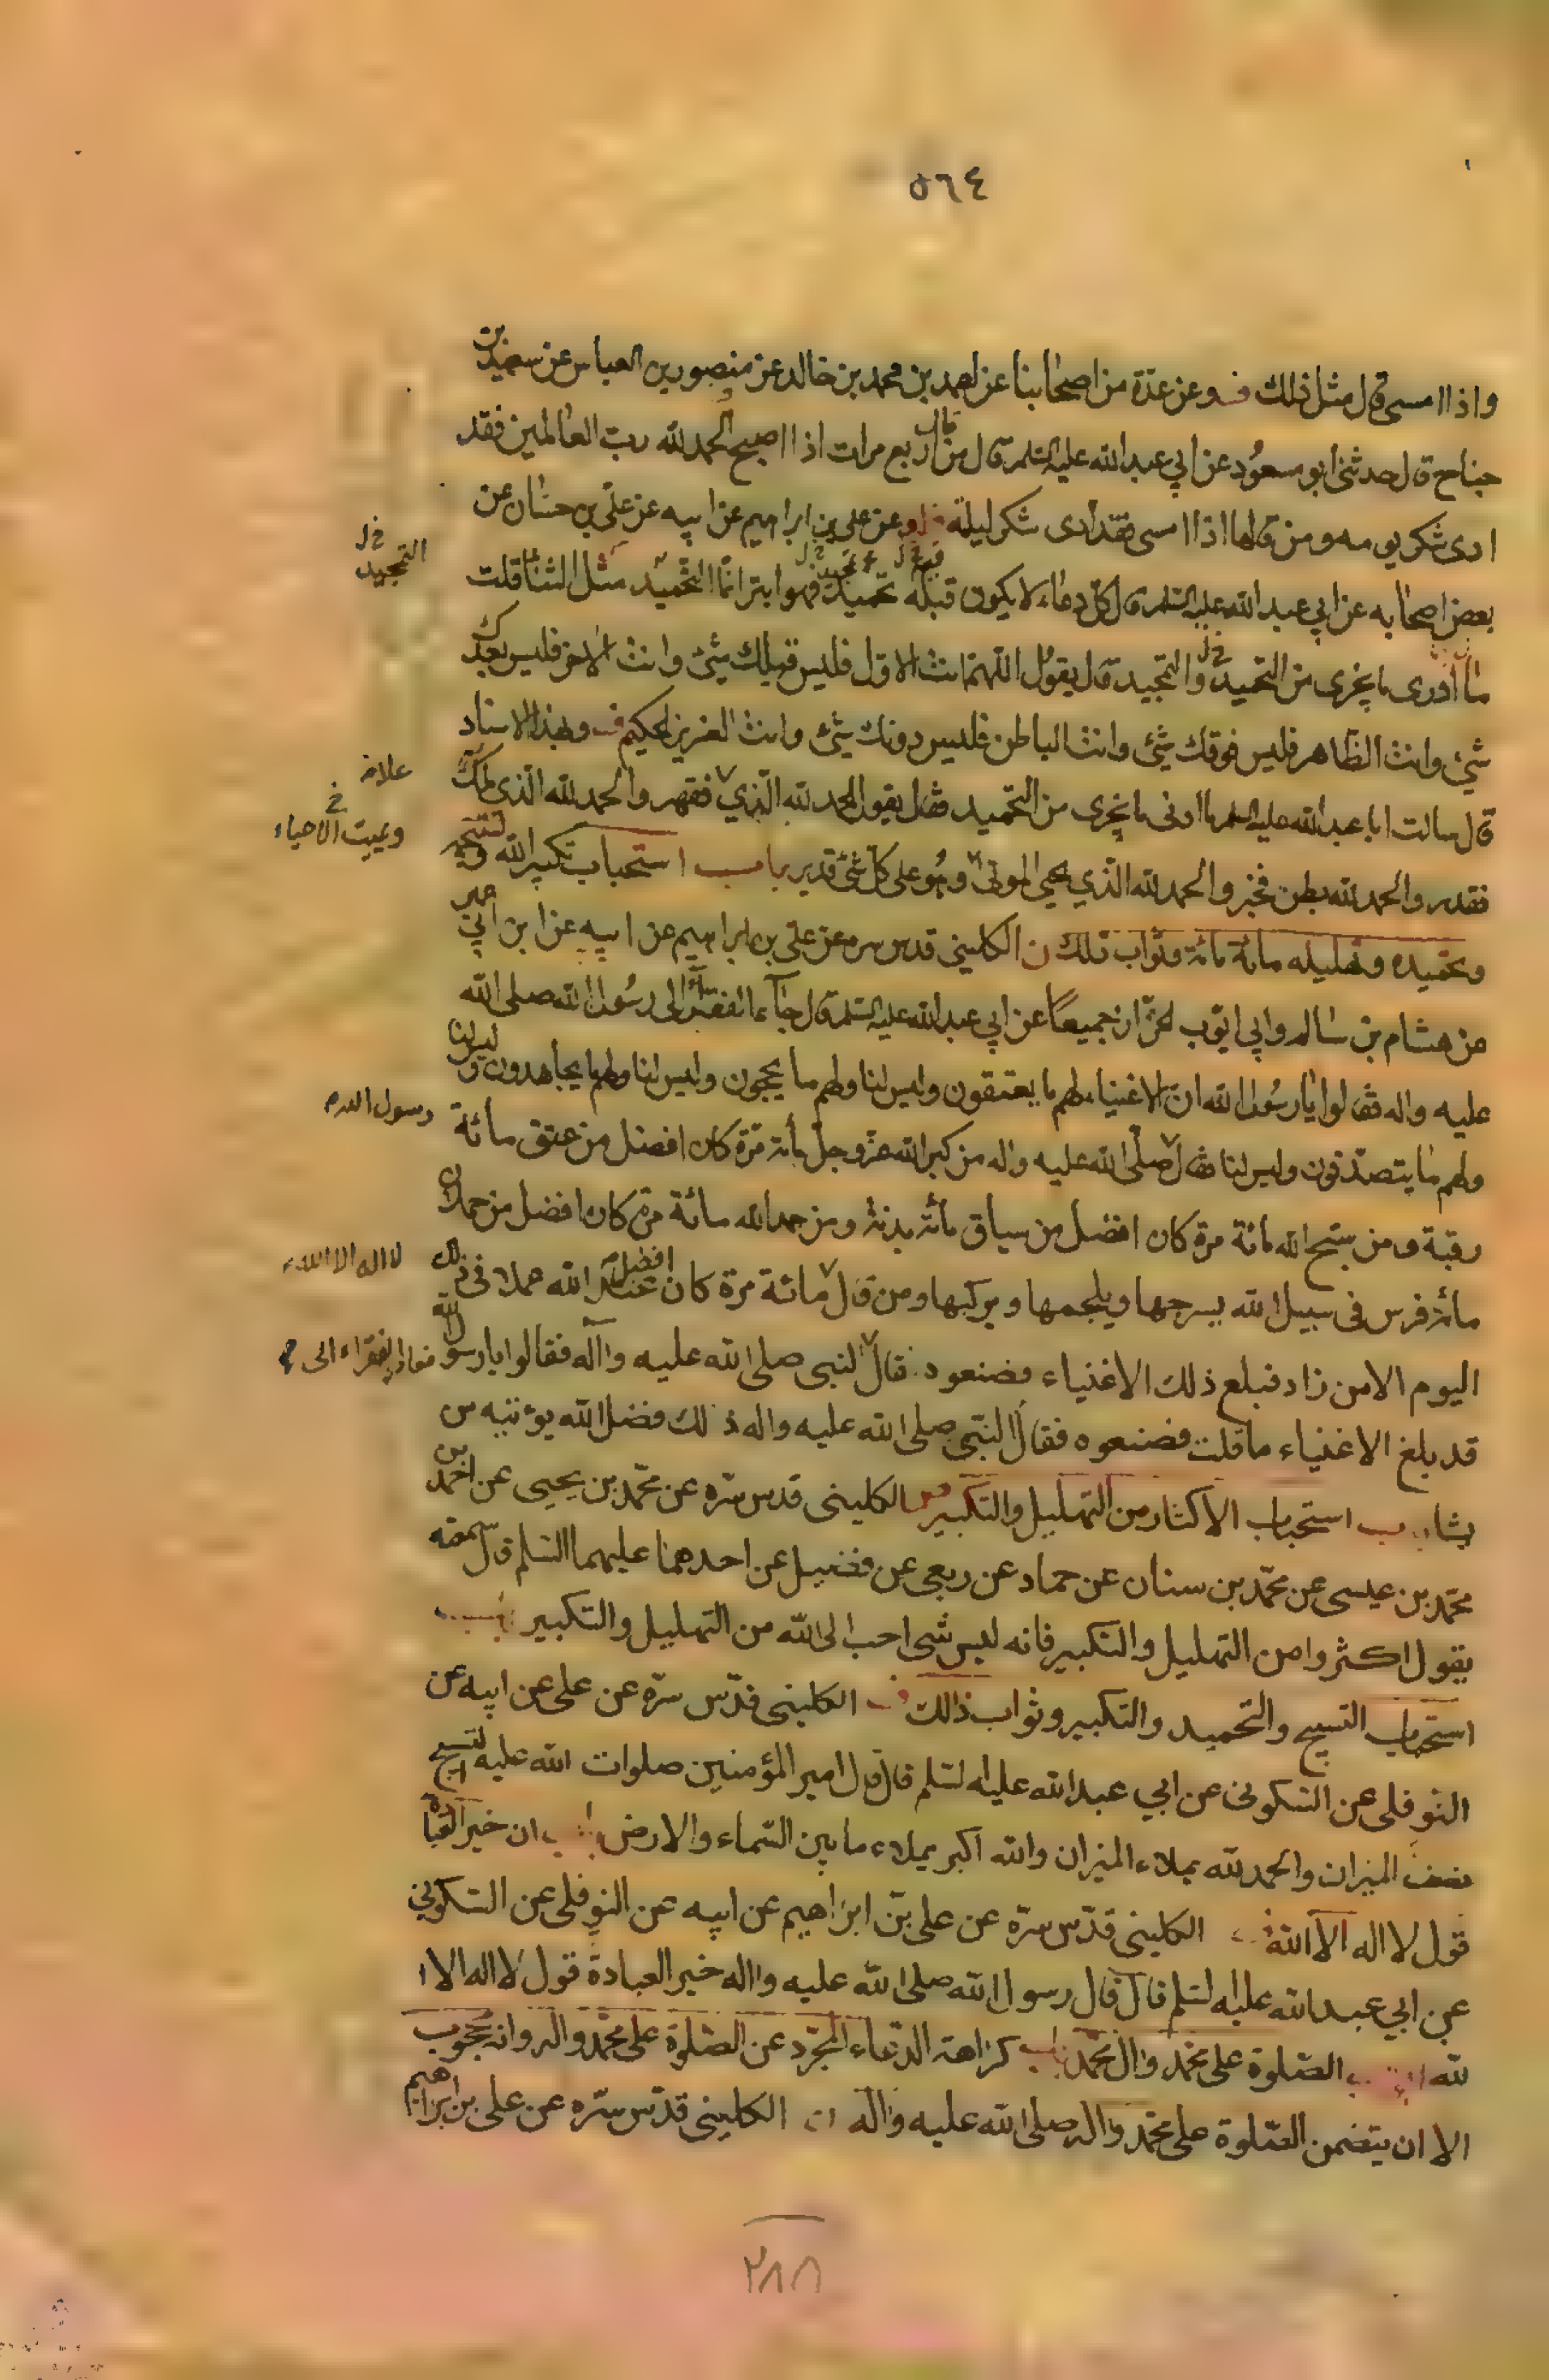 ٥٦٤
واذا امسى قال مثل ذلك وعن عدة من اصحابنا عن احمد بن محمد بن خالد عن منصور بن العباس عن سعيد بن
جناح قال حدثنى ابو مسعود عن ابي عبد الله عليه السلم قال من قال اربع مرات اذا اصبح الحمد لله رب العالمين فقد
ادى شكر يومه ومن قالها اذا امسى فقد ادى شكر ليلته وعن على بن ابراهيم عن ابيه عن على بن حسان عن
بعض اصحابه عن ابي عبد الله عليه السلم قال كل دعاء لا يكون قبله تحميد فهو ابتر انما التحميد مثل الثنا قلت
التمجيد خ ل
ما ادرى ما يجزى من التحميد والتمجيد قال يقول اللهم انت الاول فليس قبلك شئ وانت الاخر فليس بعدك
شئ وانت الظاهر فليس فوقك شئ وانت الباطن فليس دونك شئ وانت العزيز الحكيم وبهذا الاسناد
قال سالت ابا عبد الله عليه السلم ما ادنى ما يجزى من التحميد فقال يقول الحمد لله الذي فقهر والحمد لله الذى ملك
علا
فقدر والحمد لله بطن فخبر والحمد لله الذي يحيي الموتى وهو على كل شئ قدير باب استحباب تكبير الله وتسبيحه
ويميت الاحياء خ
وتحميده وتهليله مائة مائة وثواب ذلك الكلينى قدس سره عن على بن ابراهيم عن ابيه عن ابن ابي عمير
عن هشام بن سالم وابي ايوب الخزاز جميعا عن ابي عبد الله عليه السلم قال جاء الفقراء الى رسول الله صلى الله
عليه واله فقالوا يا رسول الله ان الاغنياء لهم ما يعتقون وليس لنا ولهم ما يحجون وليس لنا ولهم ما يجاهدون وليس لنا
ولهم ما يتصدقون وليس لنا فقال صلى الله عليه واله من كبر الله عز وجل مائة مرة كان افضل من عتق مائة
رسول الله
رقبة ومن سبح الله مائة مرة كان افضل من سياق مائة بدنة ومن حمد الله مائة مرة كان افضل من حملان
مائة فرس فى سبيل الله بسرجها ويلجمها ويركبها ومن قال مائة مرة كان افضل الله عملا فى ذلك
لا اله الا الله
اليوم الا من زاد فبلغ ذلك الاغنياء فصنعوه قال النبى صلى الله عليه واآله فقالوا يا رسول الله
فعاد الفقراء الى
قد بلغ الاغنياء ما قلت فصنعوه فقال النبي صلى الله عليه واله ذلك فضل الله يؤتيه من
يشاء باب استحباب الاكثار من التهليل والتكبير الكلينى قدس سره عن محمد بن يحيى عن احمد بن
محمد بن عيسى عن محمد بن سنان عن حماد عن ربعى عن فضيل عن احدهما عليهما السلم قال سمعته
يقول اكثروا من التهليل والتكبير فانه ليس شى احب الى الله من التهليل والتكبير باب
استحباب التسبيح والتحميد والتكبير وثواب ذالك الكلينى قدس سره عن على عن ابيه عن
النوفلى عن السكونى عن ابي عبد الله عليه السلم قال قال امير المؤمنين صلوات الله عليه التسبيح
نصف الميزان والحمد لله يملاء الميزان والله اكبر يملاء ما بين السماء والارض باب ان خير العبادة
قول لا اله الا الله الكلينى قدس سره عن على بن ابراهيم عن ابيه عن النوفلى عن السكوني
عن ابي عبد الله عليه السلم قال قال رسول الله صلى الله عليه واله خير العبادة قول لا اله الا ا
لله الصلوة على محمد وال محمد باب كراهة الدعاء المجرد عن الصلوة على محمد واله وانه محجوب
الا ان يتضمن الصلوة على محمد واله صلى الله عليه واله الكلينى قدس سره عن على بن ابراهيم
٢٨٨